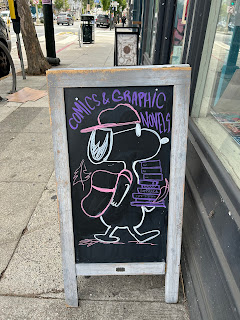 COMICS & GRAPHIC
NOVELS